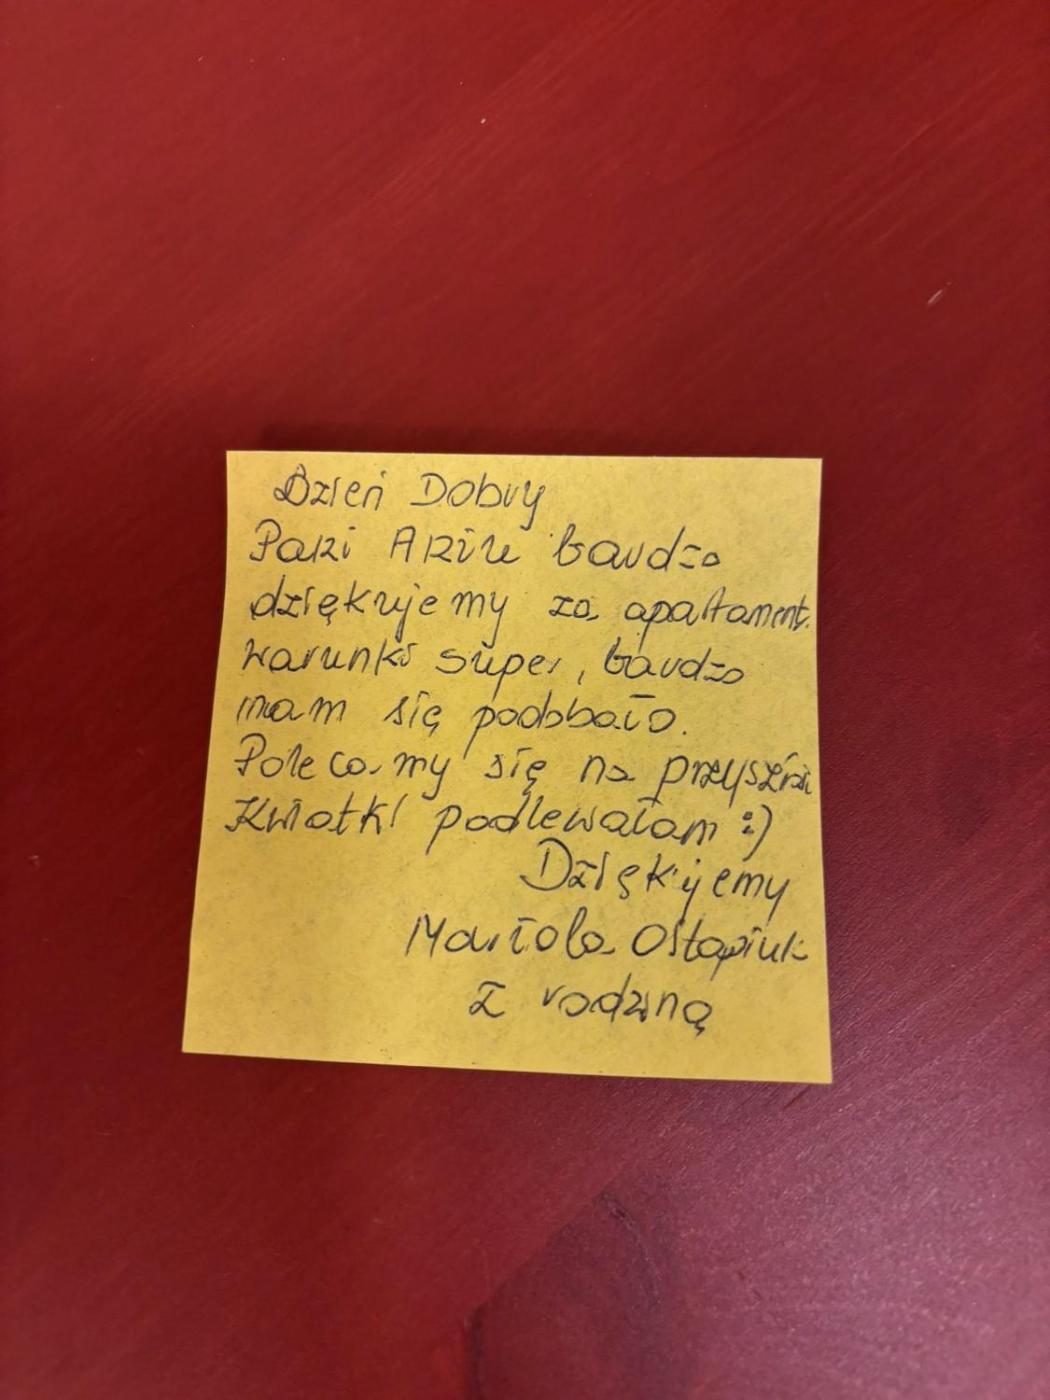 Dzień Dobry
Pani Aniu bardzo
dziękujemy za apartament.
Warunki super, bardzo
nam się podobało.
Polecamy się na przyszłość
Kwiatki podlewałam :)
Dziękujemy
Mariola Ostapiuk
z rodziną